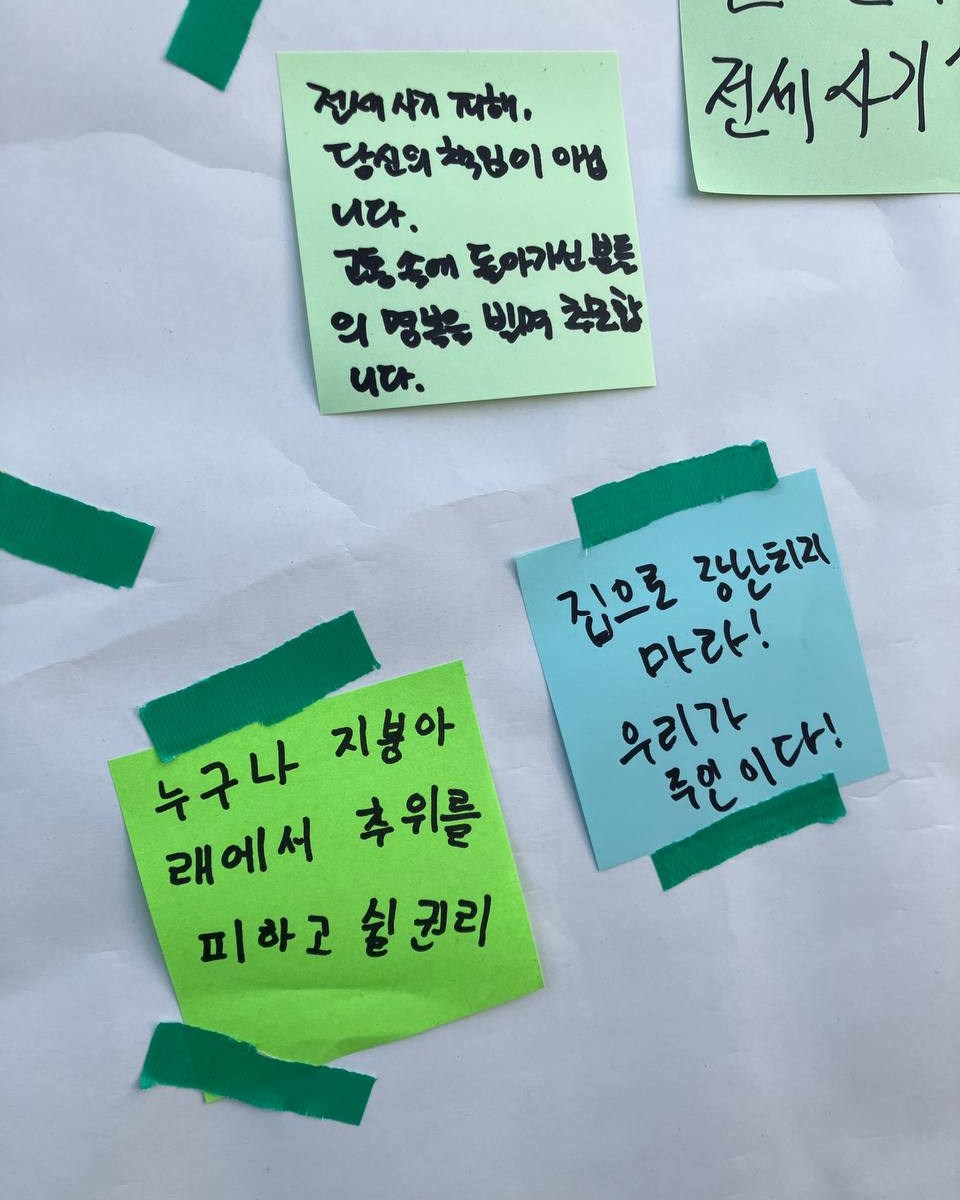 전세 사기 피해,
당신의 책임이 아닙
니다.
고통 속에 돌아가신 분들
의 명복을 빌며 추모합
니다.
전세 사기
집으로 장난치지
마라!
우리가
주인이다!
누구나 지붕아
래에서 추위를
피하고 쉴 권리